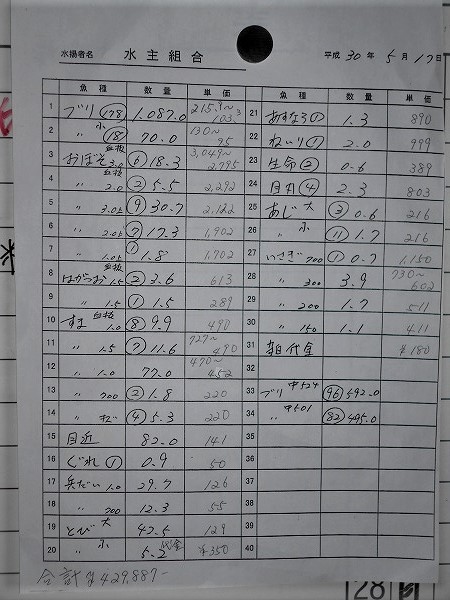 水揚者名 水主組合 平成 30年 5月 17日
魚種 数量 単価
1 ブリ (178) 1,087.0 215.9~103.3
2 〃 小 (18) 70.0 130~95
3 おぼそ 血抜 3.0 (6) 18.3 3,049~2,795
4 〃 血抜 2.0 (2) 5.5 2,292
5 〃 3.0上 (9) 30.7 2,122
6 〃 2.0上 (7) 17.3 1,902
7 〃 1.0上 (1) 1.8 1,702
8 はがつお 血抜 1.5 (2) 3.6 613
9 〃 1.5 (1) 1.5 289
10 すま 血抜 1.0 (8) 9.9 490
11 〃 1.5 (7) 11.6 727~490
12 〃 1.0 77.0 470~452
13 〃 700 (2) 1.8 220
14 〃 (4) 5.3 220
15 目近 82.0 141
16 ぐれ (1) 0.9 50
17 兵だい 1.0 29.7 126
18 〃 700 12.3 55
19 とび 大 42.5 129
20 〃 小 5.2 代金 ¥350
魚種 数量 単価
21 (1) 1.3 890
22 ねいり (1) 2.0 999
23 生命 (2) 0.6 389
24 (4) 2.3 803
25 あじ 大 (3) 0.6 216
26 〃 小 (11) 1.7 216
27 いさぎ 700 (1) 0.7 1,150
28 〃 300 3.9 730~602
29 〃 200 1.7 511
30 〃 150 1.1 411
31 代金 ¥180
32
33 ブリ 中524 (96) 592.0
34 〃 中501 (82) 495.0
35
36
37
38
39
40
合計 ¥429,887-
128